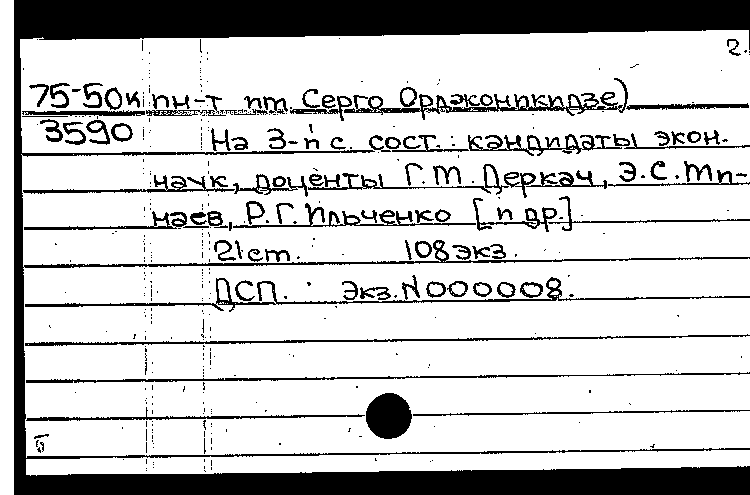 2.
75-50к ин-т им. Серго Орджоникидзе)
3590 На 3-й с. сост.: кандидаты экон.
наук, доценты Г.М. Деркач, Э.С. Ми-
наев, Р.Г. Ильченко [и др.]
21 ст. 108 экз.
ДСП. Экз. N000008.
Б